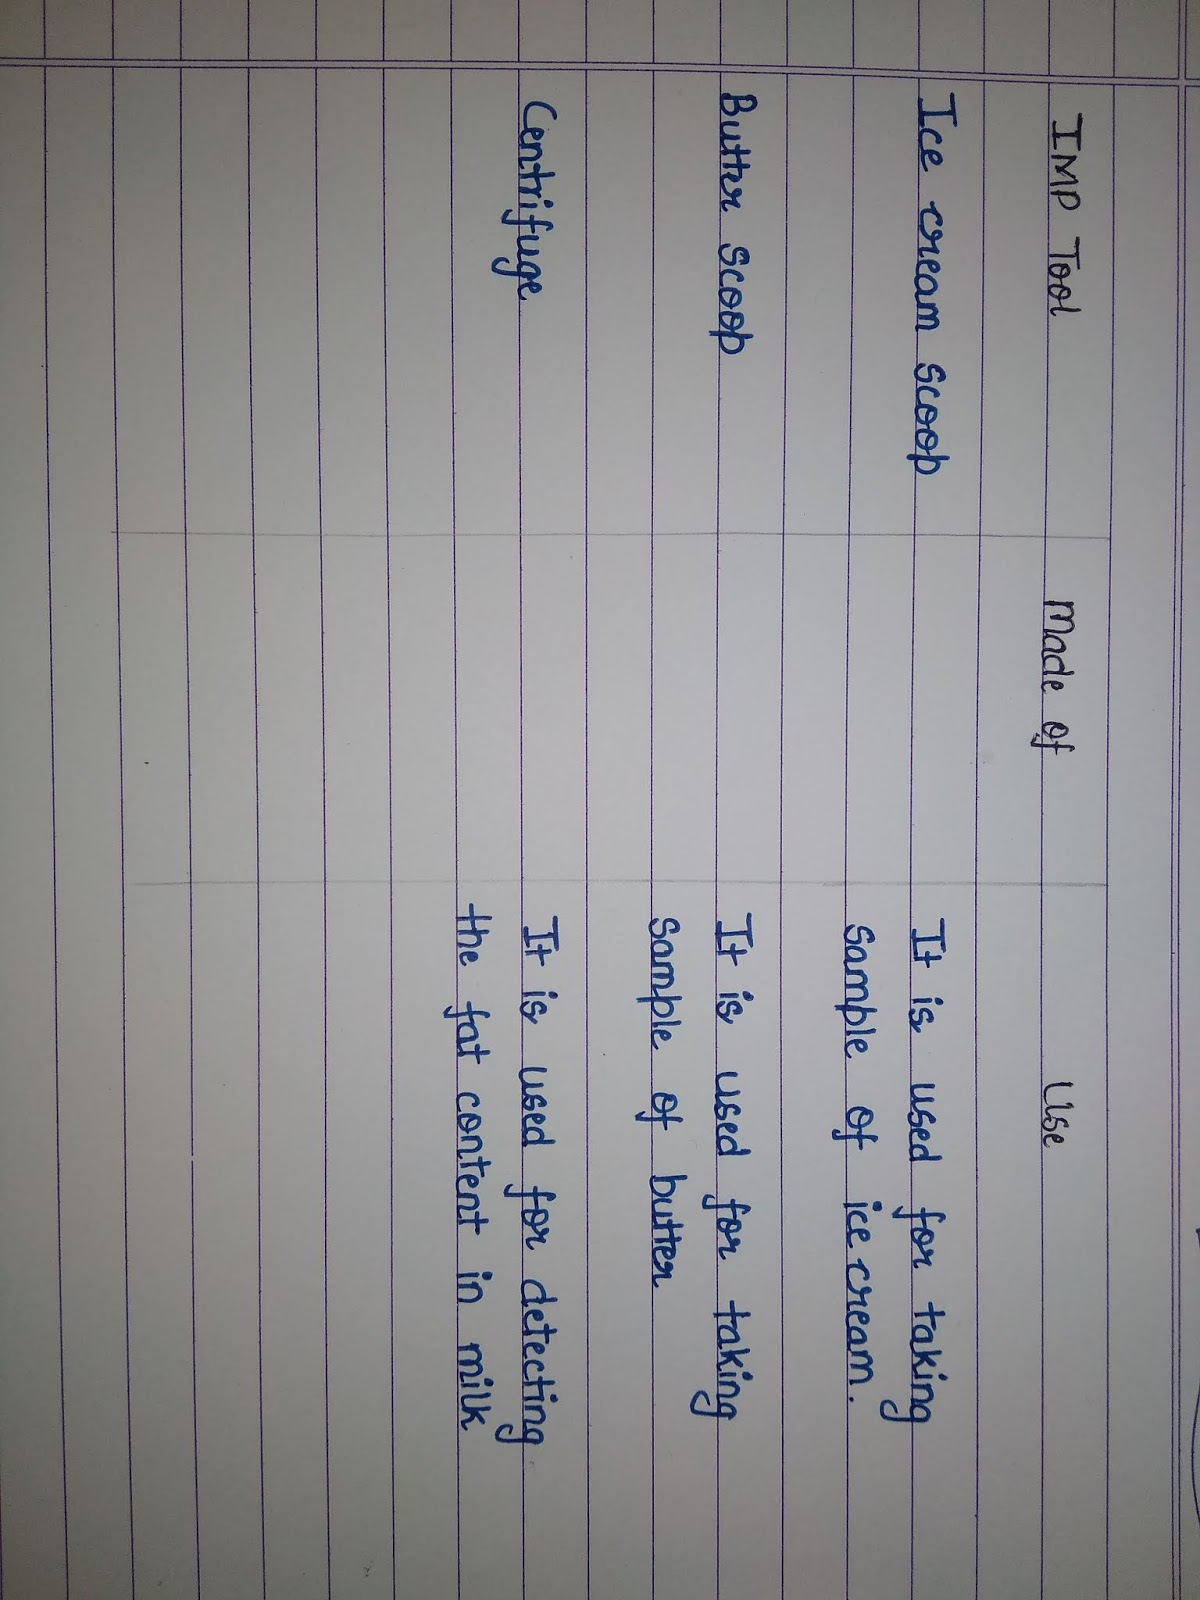 IMP Tool Made of Use
Ice cream scoop It is used for taking
sample of ice cream.
Butter scoop It is used for taking
sample of butter
Centrifuge It is used for detecting
the fat content in milk